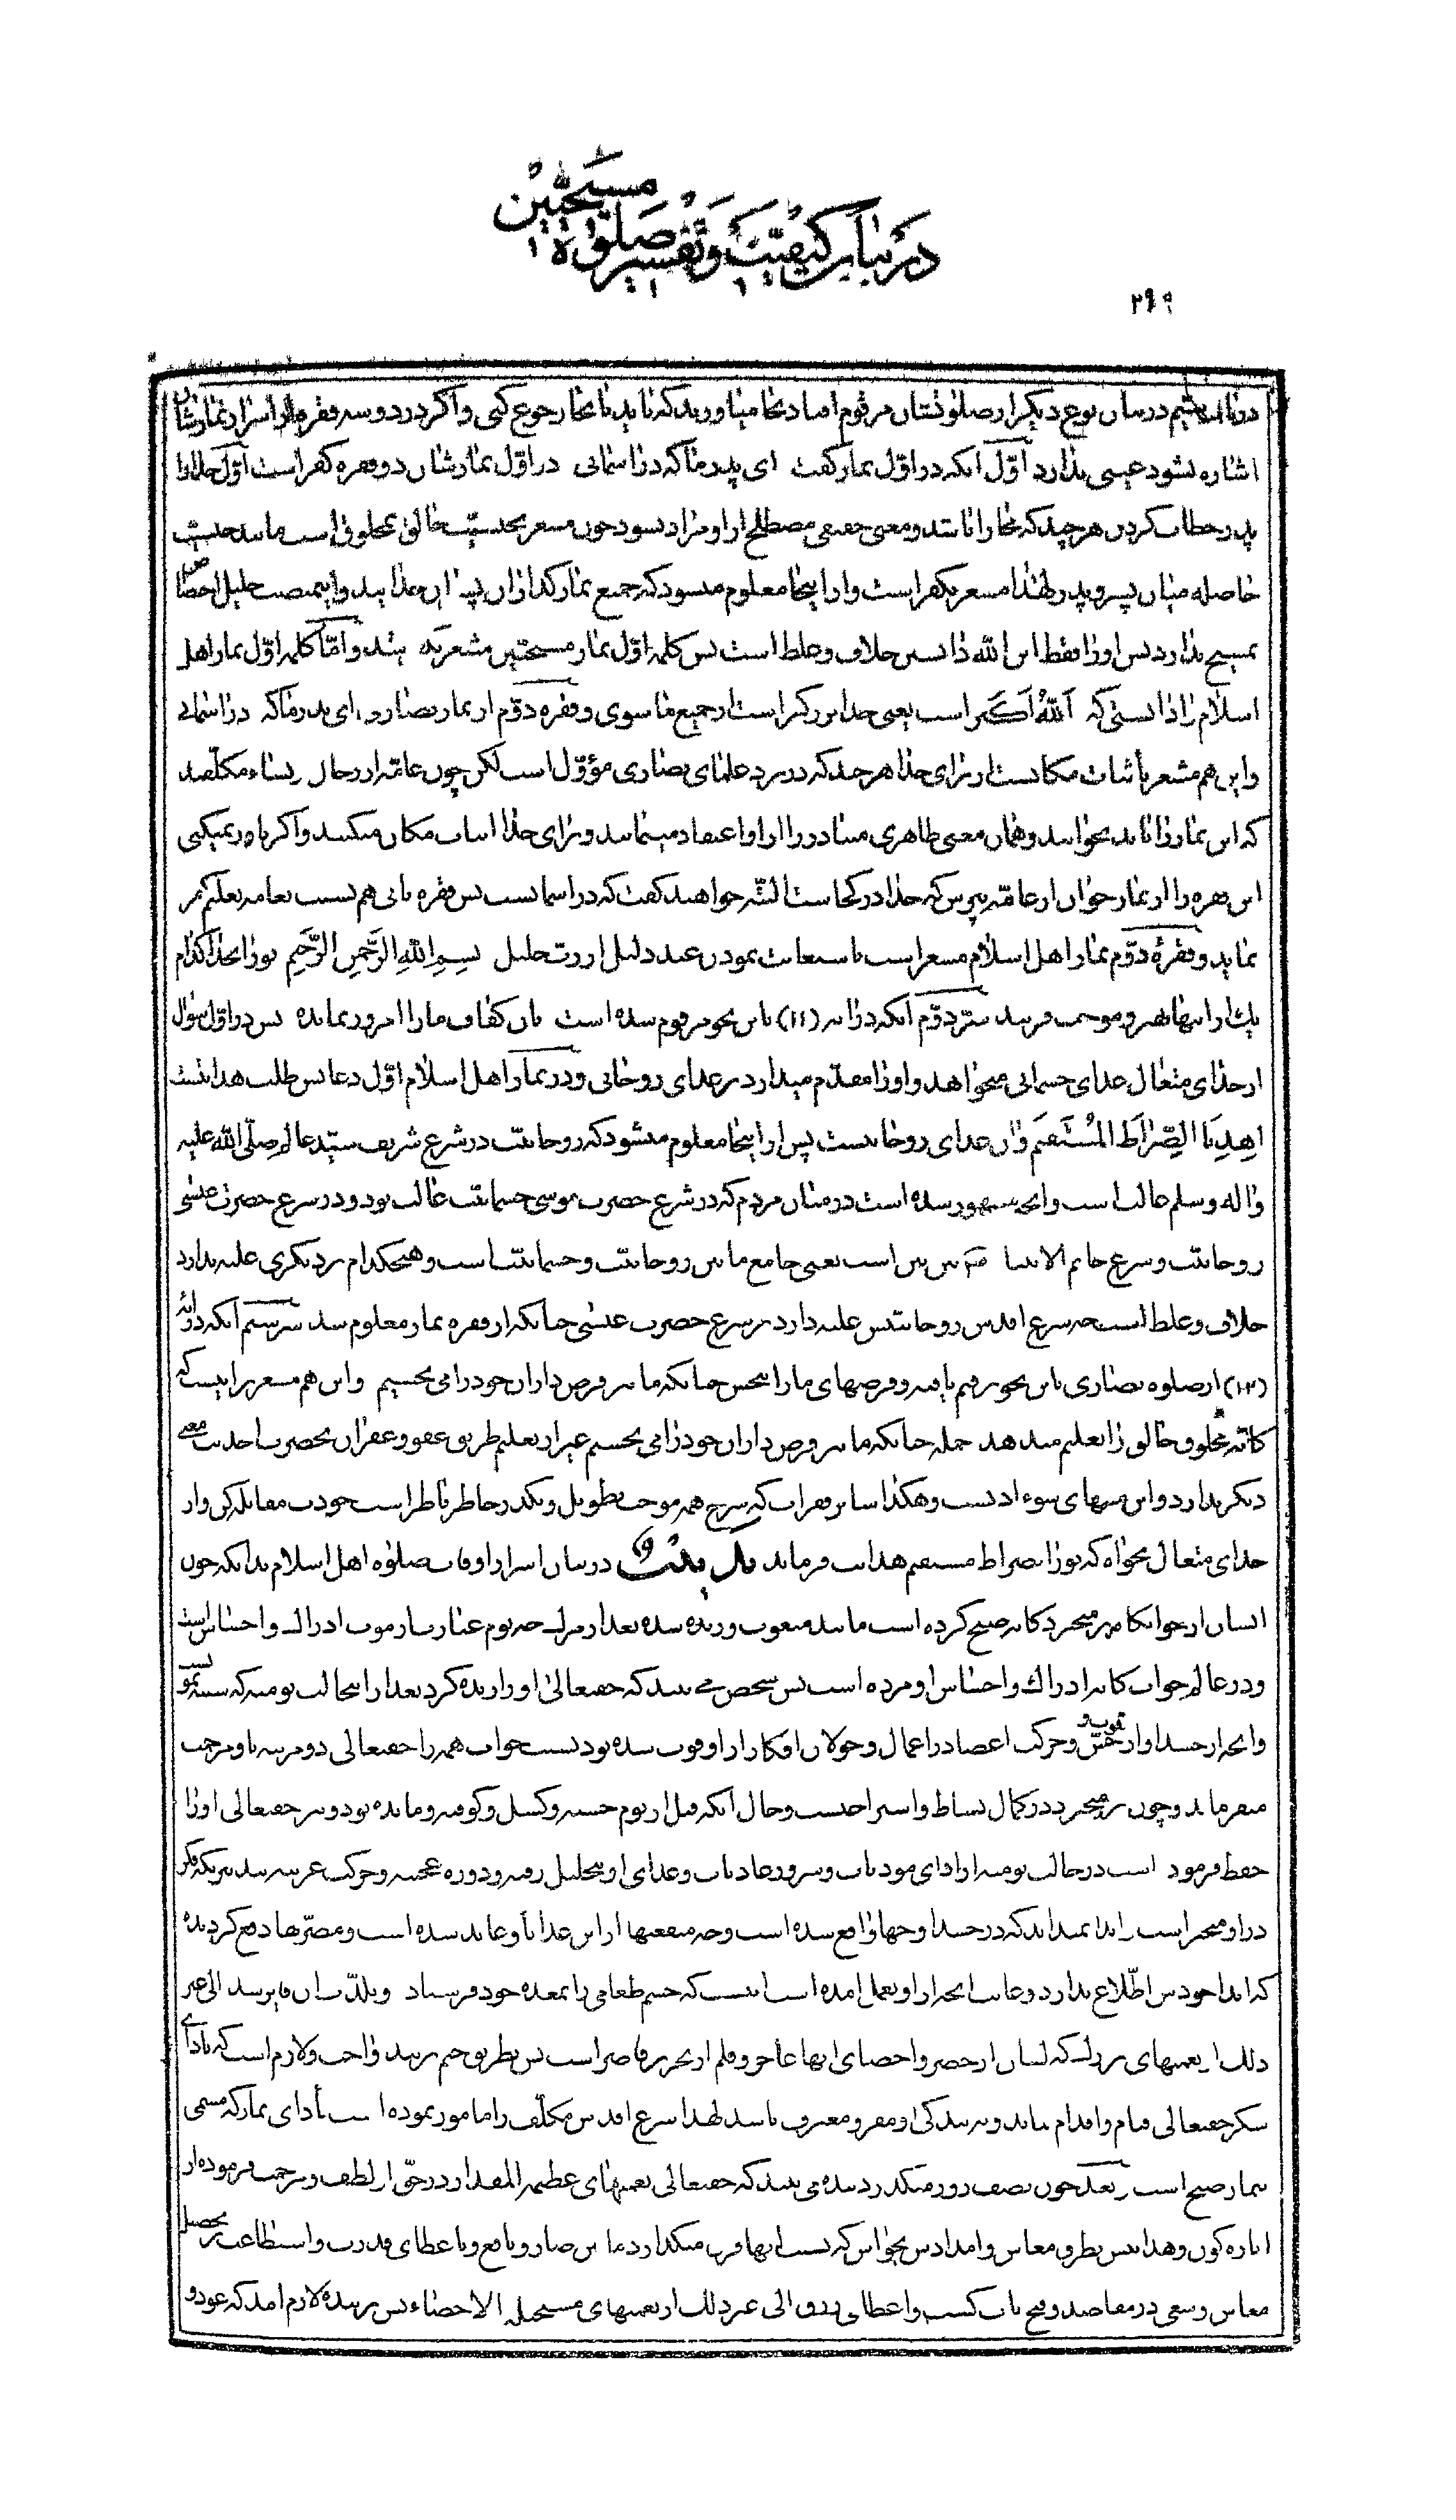 در بیان کیفیت و تفسیر صلوة مسیحیین
۲۹۹
در باب هشتم در بیان نوع دیگر از صلوتشان مرقوم افتاد بخا میاورید که باید بانجا رجوع کنی و اگر در دو سه فقره از اسرار نمازشان
اشاره بشود عیبی ندارد اوّل آنکه در اوّل نماز گفت ای پدر ما که در آسمانی در اوّل نمازشان دو فقره کفر است اوّل خدا را
پدر خطاب کردن هر چند که مجازا باشد و معنی حقیقی مصطلح از او مراد نشود چون مشعر بجنسیّت خالق بمخلوق است مانند جنسیت
حاصله میان پسر و پدر لهذا مشعر بکفر است و از اینجا معلوم میشود که جمیع نمازگذاران پسران خدایند و این منصب جلیل اختصاصی
بمسیح ندارد پس او را فقط ابن الله دانستن خلاف و غلط است پس کلمه اوّل نماز مسیحیین مشعر بکفر شد و امّا کلمه اوّل نماز اهل
اسلام را دانستی که اَللّٰهُ اَکبَر است یعنی خدا بزرگتر است از جمیع ما سوی و فقره دوّم از نماز نصاری ای پدر ما که در آسمانی
و این هم مشعر باثبات مکانست از برای خدا هر چند که در نزد علمای نصاری مؤوّل است لکن چون عامّه از رجال و نساء مکلّفند
که این نماز را باید بخوانند و همان معنی ظاهری متبادر را از او اعتقاد مینمایند و برای خدا اثبات مکان میکنند و اگر باور نمیکنی
این فقره را از نماز خوان از عامّه بپرس که خدا در کجاست البتّه خواهند گفت که در آسمانست پس فقره ثانی هم نسبت بعامه تعلیم کفر
نماید و فقرهٔ دوّم نماز اهل اسلام مشعر است باستعانت نمودن عبد ذلیل از ربّ جلیل بِسمِ اللهِ الرَّحمنِ الرَّحیمِ تو را بخدا کدام
یک از اینها بهتر و موجب قربند سرّ دوّم آنکه در آیه (۱۱) باین نحو مرقوم شده است نان کفاف ما را امروز بما بده پس در اوّل سؤال
از خدای متعال غذای جسمانی میخواهد و او را مقدّم میدارد بر غذای روحانی و در نماز اهل اسلام اوّل دعایش طلب هدایتست
اِهدِنَا الصِّرَاطَ المُستَقیمَ و آن غذای روحانیست پس از اینجا معلوم میشود که روحانیّت در شرع شریف سیّد عالم صلّی الله علیه
و آله و سلم غالب است و آنچه مشهور شده است در میان مردم که در شرع حضرت موسی جسمانیّت غالب بود و در شرع حضرت عیسی
روحانیّت و شرع خاتم الانبیا بین بین است یعنی جامع مابین روحانیّت و جسمانیّت است و هیچکدام بر دیگری غلبه ندارد
خلاف و غلط است چه شرع اقدس روحانیتش غلبه دارد بر شرع حضرت عیسی چنانکه از فقره نماز معلوم شد سرّ سیّم آنکه در آیه
(۱۲) از صلوه نصاری باین نحو رقم یافته و قرضهای ما را ببخش چنانکه ما نیز قرض داران خود را می بخشیم و این هم مشعر بر اینست که
کانّه مخلوق خالق را تعلیم میدهد جمله چنانکه ما نیز قرض داران خود را می بخشیم غیر از تعلیم طریق عفو و غفران بحضرت احدیت معنی
دیگر ندارد و این منتهای سوء ادبست و هکذا سایر فقرات که شرح همه موجب تطویل و تکدّر خاطر ناظر است خودت مقابله کن و از
خدای متعال بخواه که تو را بصراط مستقیم هدایت فرماید تذنیب در بیان اسرار اوقات صلوه اهل اسلام بدانکه چون
انسان از خوابگاه بر میخیزد گانه صبح کرده است مانند مبعوث و زنده شده بعد از مرگ چه نوم عبارت از موت ادراک و احساس است
و در عالم خواب گانه ادراک و احساس او مرده است پس شخص می بیند که حقتعالی او را زنده کرد بعد از اینحالت نومیه که شبیه بموتست
و آنچه از جسد او از تعب و حسّ و حرکت اعضا در اعمال و جولان افکار از او فوت شده بود بسبب خواب همه را حقتعالی دو مرتبه باو مرحمت
میفرماید و چون بر میخیزد در کمال نشاط و استراحتست و حال آنکه قبل از نوم خسته و کسل و کوفته و مانده بود و نیز حقتعالی او را
حفظ فرموده است در حالت نومیه از اذای موذیات و شرور عادیات و غذای او بتحلیل رفته و دوره عجیبه و حرکت غریبه
در او متحیر است ابدا نمیداند که در جسد او چها واقع شده است و چه منفعتها از این غذا باو عاید شده است و مضرّتها دفع گردیده
که ابدا خودش اطّلاع ندارد و غایت آنچه از او بعمل آمده است اینست که جسم طعامی را بمعده خود فرستاد و بلذّت آن فایز شد الی غیر
ذلک از نعمتهای بزرگ که لسان از حصر و احصای آنها عاجز و قلم از تحریر قاصر است پس بطریق حتم بر بنده واجب و لازم است که بادای
شکر حقتعالی قیام و اقدام نماید و به بندگی او مقر و معترف باشد لهذا شرع اقدس مکلّف را مامور نموده است بادای نماز که مسمی
بنماز صبح است و بعد چون نصف روز میگذرد بنده می بیند که حقتعالی نعمتهای عظیم المقدار در حقّ او لطف و مرحمت فرموده از
اناره کون و هدایتش بطرق معاش و امداد بحواس که بسبب آنها فرق میگذارد مابین ضار و نافع و باعطای قدرت و استطاعت بر تحصیل
معاش و سعی در مقاصد و فتح باب کسب و اعطای رزق الی غیر ذلک از نعمتهای مستحیله الاحصاء پس بر بنده لازم آمد که عود و